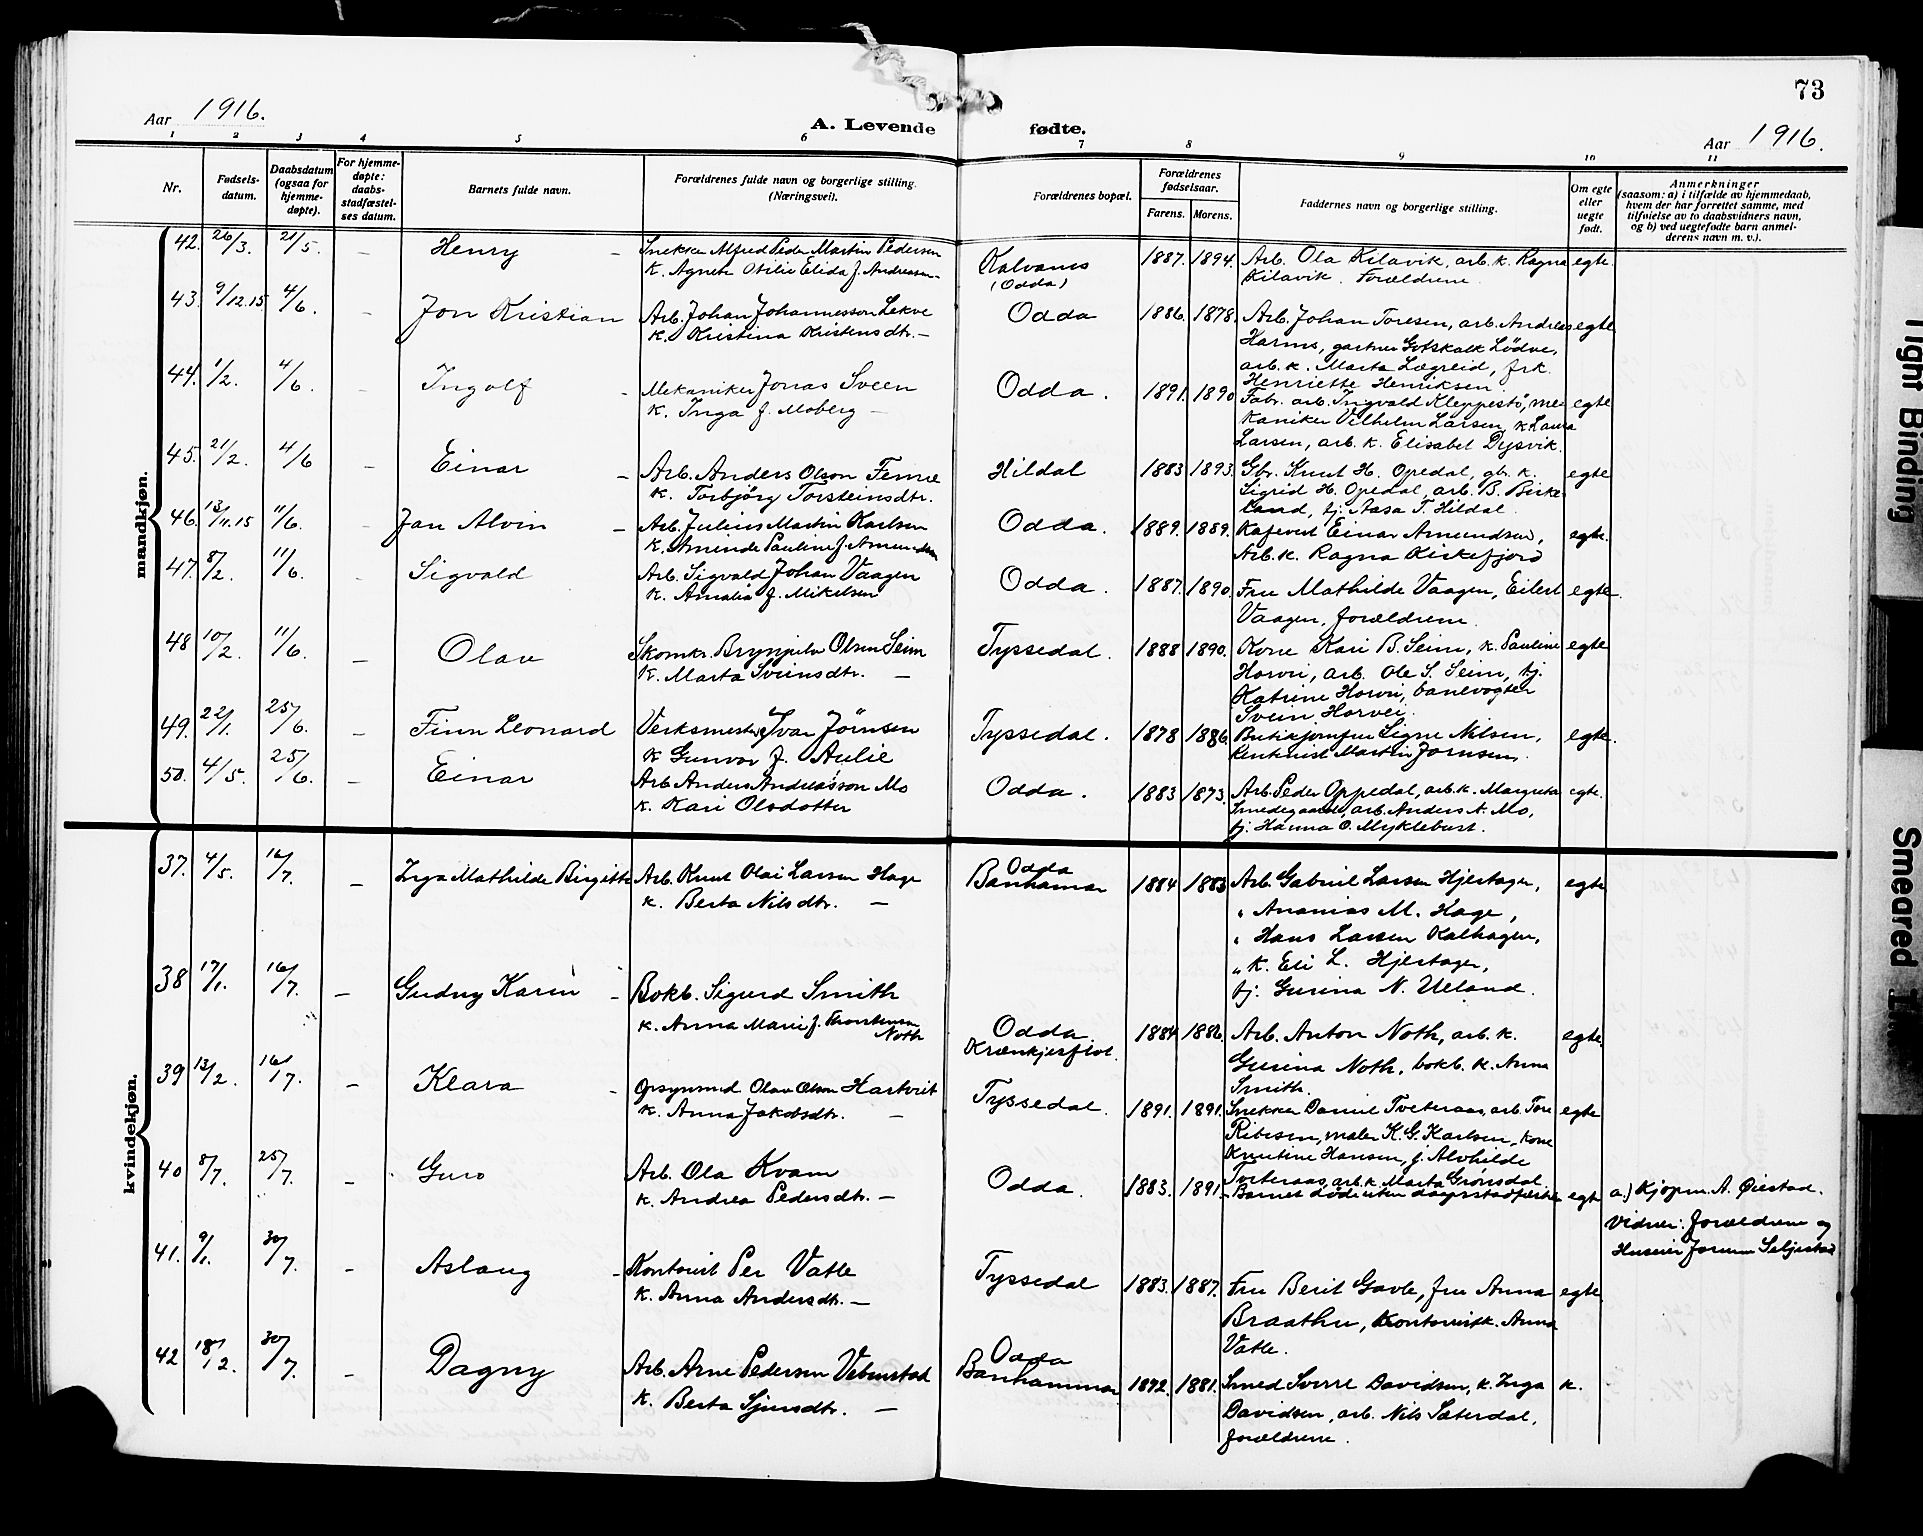 73
Aar 1916.
A. Levende fødte.
Aar 1916.
1 2 3 4 5 6 7 8 9 10 11
Nr.
Fødsels-
datum.
Daabsdatum
(ogsaa for
hjemme-
døpte).
For hjemme-
døpte:
daabs-
stadfæstel-
ses datum.
Barnets fulde navn.
Forældrenes fulde navn og borgerlige stilling.
(Næringsvei).
Forældrenes bopæl.
Forældrenes
fødselsaar.
Farens. Morens.
Faddernes navn og borgerlige stilling.
Om egte
eller
uegte
født.
Anmerkninger
(saasom: a) i tilfælde av hjemmedaab,
hvem der har forrettet samme, med
tilføielse av to daabsvidners navn,
og b) ved uegtefødte barn anmel-
derens navn m. v.).
mandkjøn.
42. 26/3. 21/5. – Henry – Snekker Alfred Peder Martin Pedersen
k. Agnete Otilie Elida f. Andreasen
Kalvanes
(Odda)
1887. 1894. Arb. Ola Kilavik, arb. k. Ragna
Kilavik. Forældrene.
egte.
43. 9/12.15 4/6. – Jon Kristian Arb. Johan Johannesson Lekve
k. Kristina Kristensdtr. –
Odda 1886. 1878. Arb. Johan Toresen, arb. Andreas
Harms, gartner Gotskalk Lødve,
arb. k. Marta Lægreid, frk.
Henriette Henriksen.
egte
44. 1/2. 4/6. – Ingolf – Mekaniker Jonas Sveen
k. Inga f. Moberg –
Odda. 1891. 1890 Fabr. arb. Ingvald Kleppestø, me-
kaniker Vilhelm Larsen, k. Laura
Larsen, arb. k. Elisabet Dysvik.
egte
45. 21/2. 4/6 – Einar – Arb. Anders Olson Femre
k. Torbjörg Torsteinsdtr.
Hildal 1883 1893. Gbr. Knut H. Opedal, gb. k.
Sigrid H. Opedal, arb. B. Birke-
land, tj. Aasa T. Hildal.
egte
46. 13/11.15 11/6. – Jan Alvin – Arb. Julius Martin Karlsen
k. Aminde Pauline f. Amundsen
Odda. 1889. 1889. Kafevert Einar Amundsen,
Arb. k. Ragna Kirkefjord
egte.
47. 8/2. 11/6. – Sigvald Arb. Sigvald Johan Vaagen
k. Amalia f. Mikelsen
Odda. 1887. 1890. Fru Mathilde Vaagen, Eilert
Vaagen, forældrene.
egte.
48 10/2. 11/6. – Olav Skomkr. Brynjulv Olsen Seim
k. Marta Sveinsdtr. –
Tyssedal. 1888 1890. Kone Kari B. Seim, k. Pauline
Horvei, arb. Ole S. Seim, tj.
Katrine Horvei, banevogter
Svein Horvei.
egte
49. 22/1. 25/6. – Finn Leonard Verksmester Ivar Jörnsen
k Gunvor f. Aulie
Tyssedal. 1878 1886. Butikjomfru Signe Nilsen,
Martin Jörnsen.
egte.
50. 4/5. 25/6. – Einar Arb Anders Andreasson Mo
k. Kari Olsdotter
Odda. 1883 1873. Arb. Peder Oppedal, arb. k. Margreta
Smedegaard, arb. Anders A. Mo,
tj. Hanna O. Myklebust.
egte.
kvindekjøn.
37. 4/5. 16/7. – Inga Mathilde Birgitte Arb. Knut Olai Larsen Hage
k. Berta Nilsdtr. –
Odda
Banhamar
1884 1883 Arb. Gabriel Larsen Hjertager,
" Ananias M. Hage,
" Hans Larsen Kalhagen,
" k. Eli L. Hjertager,
tj. Gurina N. Ueland.
egte
38 17/1. 16/7. – Gudny Karin – Bokb. Sigurd Smith
k. Anna Marie f. Thorstensen
Noth
Odda
1884 1886. Arb. Anton Noth, arb. k.
Gurina Noth, bokb. k. Anna
Smith.
egte.
39 13/2. 16/7. – Klara – Opsynsmd Olav Olsen Hartveit
k. Anna Jakobsdtr. –
Tyssedal. 1891. 1891. Snekker Daniel Tveteraas, arb. Tore
Ribesen, maler K. G. Karlsen, kone
Knutine Hansen, f. Alvhilde
Tveteraas, arb. k. Marta Grønsdal.
egte
40 8/7. 25/7. – Guro Arb. Ola Kvam
k. Andrea Pedersdtr. –
Odda. 1883. 1891. – Barnet døde uten
egte a.) Kjøpm. A. Øiestad.
Vidner: forældrene og
Huseier Joruun Seljestad
41. 9/1. 30/7. – Aslaug – Kontorist Per Vatle
k. Anna Andersdtr. –
Tyssedal 1883. 1887. Fru Berit Gavle, fru Anna
Braathu, kontorist k. Anna
Vatle.
egte.
42 18/12. 30/7. – Dagny Arb. Arne Pedersen Vebenstad
k. Berta Sjursdtr. –
Odda
Banhammar
1872. 1881. Smed Sverre Davidsen, k. Inga
Davidsen, arb. Nils Sæterdal,
forældrene.
k.
Tight Binding
Smeared